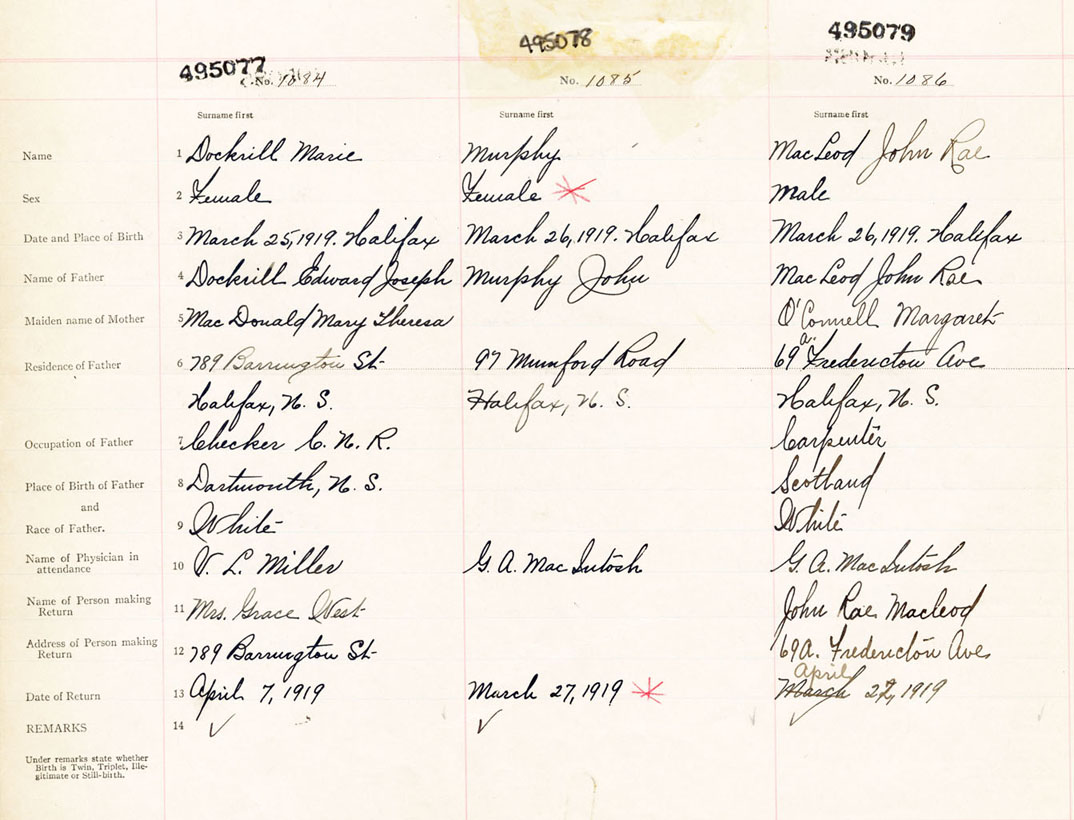 495077 495078 495079
No. 1084 No. 1085 No. 1086
Surname first Surname first Surname first
Name 1 Dockrill Marie Murphy MacLeod John Rae
Sex 2 Female Female Male
Date and Place of Birth 3 March 25, 1919. Halifax March 26, 1919. Halifax March 26, 1919. Halifax
Name of Father 4 Dockrill Edward Joseph Murphy John MacLeod John Rae
Maiden name of Mother 5 MacDonald Mary Theresa O'Connell Margaret
Residence of Father 6 789 Barrington St 97 Mumford Road 69 a. Fredericton Ave
Halifax, N. S. Halifax, N. S. Halifax, N. S.
Occupation of Father 7 Checker C. N. R. Carpenter
Place of Birth of Father 8 Dartmouth, N. S. Scotland
and
Race of Father. 9 White White
Name of Physician in attendance 10 V. L. Miller G. A. MacIntosh G. A. MacIntosh
Name of Person making Return 11 Mrs. Grace West John Rae Macleod
Address of Person making Return 12 789 Barrington St 69A. Fredericton Ave
April
Date of Return 13 April 7, 1919 March 27, 1919 March 27, 1919
REMARKS 14
Under remarks state whether
Birth is Twin, Triplet, Ille-
gitimate or Still-birth.